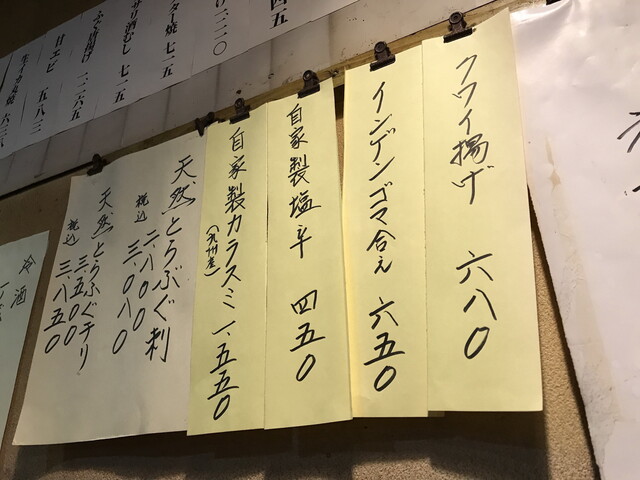 クワイ揚げ 六八〇
インゲンゴマ合え 六五〇
自家製塩辛 四五〇
自家製カラスミ 一、五五〇
(九州産)
天然とらふぐ刺
二、八〇〇
税込 三、〇八〇
天然とらふぐチリ
三、五〇〇
税込 三、八五〇
冷酒
四五
け 三二〇
ター焼 七一五
サリ酒むし 七一五
甘エビ 五八三